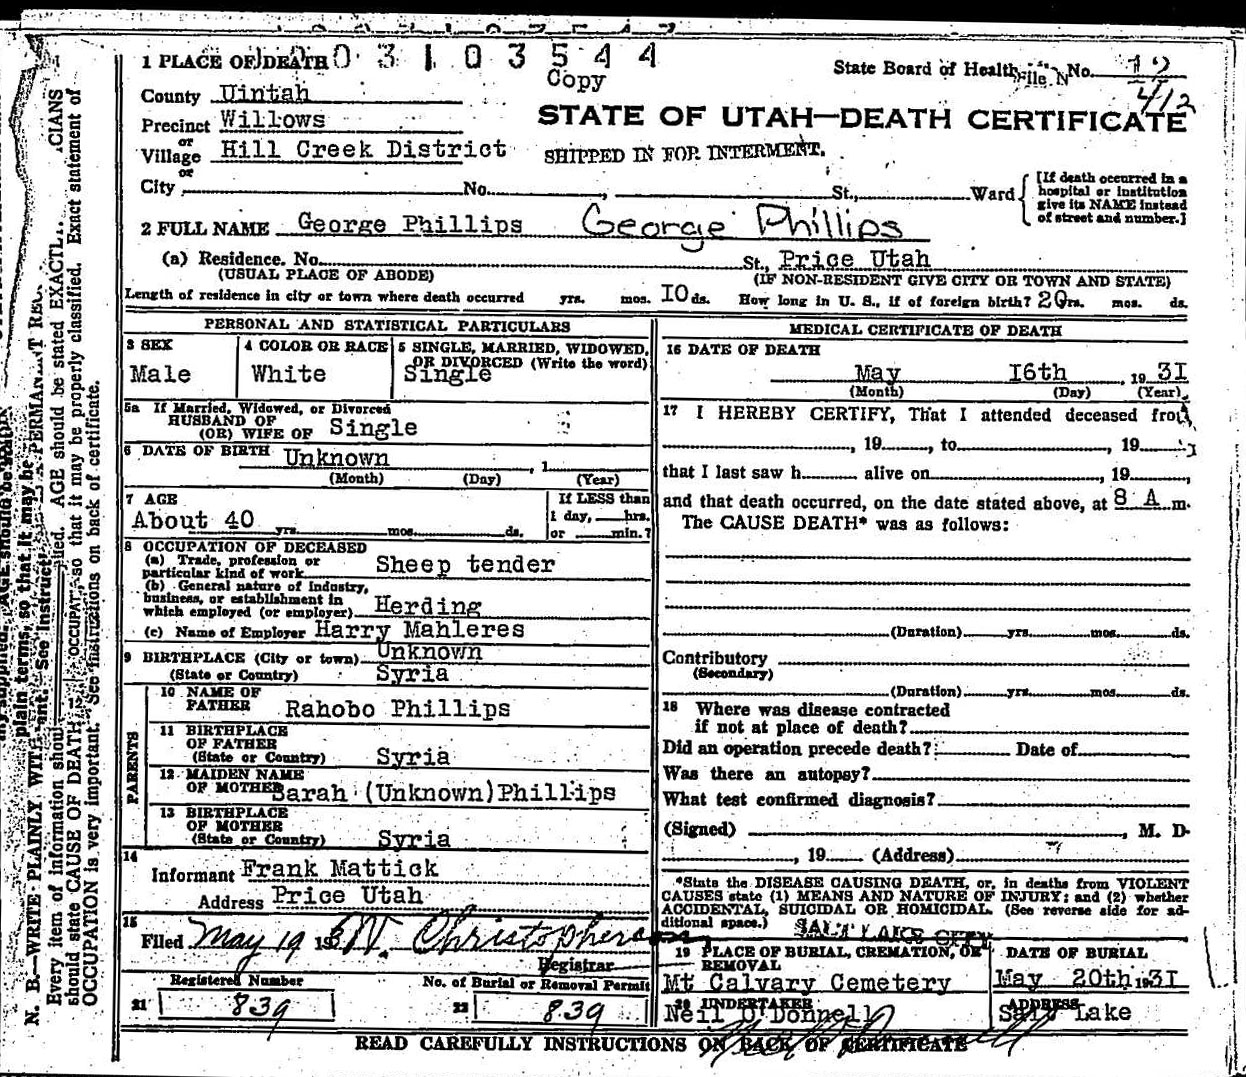 1 PLACE OF DEATH 0 3 1 0 3 5 4 4
Copy
State Board of Health File No. 12
412
County Uintah
STATE OF UTAH—DEATH CERTIFICATE
Precinct Willows
or
Village Hill Creek District
SHIPPED IN FOR INTERMENT.
or
City No. St., Ward
[If death occurred in a
hospital or institution
give its NAME instead
of street and number.]
2 FULL NAME George Phillips George Phillips
(a) Residence. No. St., Price Utah
(USUAL PLACE OF ABODE) (IF NON-RESIDENT GIVE CITY OR TOWN AND STATE)
Length of residence in city or town where death occurred yrs. mos. I0 ds. How long in U. S., if of foreign birth? 20 yrs. mos. ds.
PERSONAL AND STATISTICAL PARTICULARS
3 SEX
Male
4 COLOR OR RACE
White
5 SINGLE, MARRIED, WIDOWED,
OR DIVORCED (Write the word)
Single
5a If Married, Widowed, or Divorced
HUSBAND OF
(OR) WIFE OF Single
6 DATE OF BIRTH Unknown , 1
(Month) (Day) (Year)
7 AGE
About 40 yrs. mos. ds.
If LESS than
1 day, hrs.
or min.?
8 OCCUPATION OF DECEASED
(a) Trade, profession or
particular kind of work Sheep tender
(b) General nature of industry,
business, or establishment in
which employed (or employer) Herding
(c) Name of Employer Harry Mahleres
9 BIRTHPLACE (City or town) Unknown
(State or Country) Syria
PARENTS
10 NAME OF
FATHER Rahobo Phillips
11 BIRTHPLACE
OF FATHER
(State or Country) Syria
12 MAIDEN NAME
OF MOTHER Sarah (Unknown) Phillips
13 BIRTHPLACE
OF MOTHER
(State or Country) Syria
14
Informant Frank Mattick
Address Price Utah
15
Filed May 19 19 W. Christopherson
Registrar
Registered Number
21 839
No. of Burial or Removal Permit
22 839
MEDICAL CERTIFICATE OF DEATH
16 DATE OF DEATH
May I6th , 19 3I
(Month) (Day) (Year)
17 I HEREBY CERTIFY, That I attended deceased from
, 19 , to , 19
that I last saw h alive on , 19 ,
and that death occurred, on the date stated above, at 8 A m.
The CAUSE DEATH* was as follows:
(Duration) yrs. mos. ds.
Contributory
(Secondary)
(Duration) yrs. mos. ds.
18 Where was disease contracted
if not at place of death?
Did an operation precede death? Date of
Was there an autopsy?
What test confirmed diagnosis?
(Signed) , M. D.
, 19 (Address)
*State the DISEASE CAUSING DEATH, or, in deaths from VIOLENT
CAUSES state (1) MEANS AND NATURE OF INJURY; and (2) whether
ACCIDENTAL, SUICIDAL OR HOMICIDAL. (See reverse side for ad-
ditional space.) SALT LAKE CITY
19 PLACE OF BURIAL, CREMATION, OR
REMOVAL
Mt Calvary Cemetery
DATE OF BURIAL
May 20th 19 3I
20 UNDERTAKER
Neil O'Donnell
ADDRESS
Salt Lake
READ CAREFULLY INSTRUCTIONS ON BACK OF CERTIFICATE
N. B.—WRITE PLAINLY
Every item of information should
AGE should be stated EXACTLY.
should state CAUSE OF DEATH
so that it may be properly classified. Exact statement of
OCCUPATION is very important. See instructions on back of certificate.